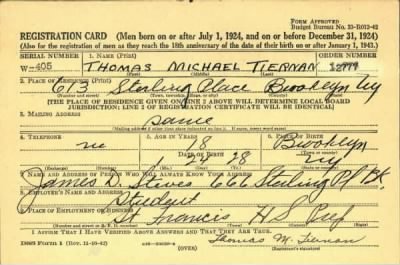 FORM APPROVED
Budget Bureau No. 33-R012-42
REGISTRATION CARD (Men born on or after July 1, 1924, and on or before December 31, 1924)
(Also for the registration of men as they reach the 18th anniversary of the date of their birth on or after January 1, 1943.)
SERIAL NUMBER 1. NAME (Print) ORDER NUMBER
W-405 THOMAS MICHAEL TIERNAN
2. PLACE OF RESIDENCE (Print)
613 Sterling Place Brooklyn Ny
[THE PLACE OF RESIDENCE GIVEN ON LINE 2 ABOVE WILL DETERMINE LOCAL BOARD
JURISDICTION; LINE 2 OF REGISTRATION CERTIFICATE WILL BE IDENTICAL]
3. MAILING ADDRESS
same
[Mailing address if other than place indicated on line 2. If same, insert word same]
4. TELEPHONE 5. AGE IN YEARS 6. PLACE OF BIRTH
no 18 Brooklyn
DATE OF BIRTH
24 Ny
7. NAME AND ADDRESS OF PERSON WHO WILL ALWAYS KNOW YOUR ADDRESS
James D 666 Sterling Pl Bk
8. EMPLOYER'S NAME AND ADDRESS
Student
9. PLACE OF EMPLOYMENT OR BUSINESS
St Francis H S Prep
I AFFIRM THAT I HAVE VERIFIED ABOVE ANSWERS AND THAT THEY ARE TRUE.
DSS Form 1 (Rev. 11-16-42) (OVER) Thomas M. Tiernan